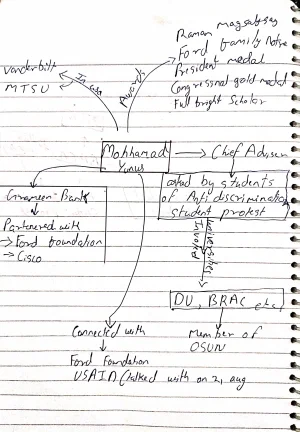 Raman magsaysay
Ford family
President medal
Congressional gold medal
Full bright Scholar
Vanderbilt
MTSU
In us
Awards
Mohhamad
Yunus
Chief Advisor
asked by students
of Anti discrimination
student protest
Grameen Bank
Partnered with
→ Ford foundation
→ Cisco
Universities
Involved
DU, BRAC etc.
Member of
OSUN
Connected with
Ford Foundation
USAID (talked with on 2, aug